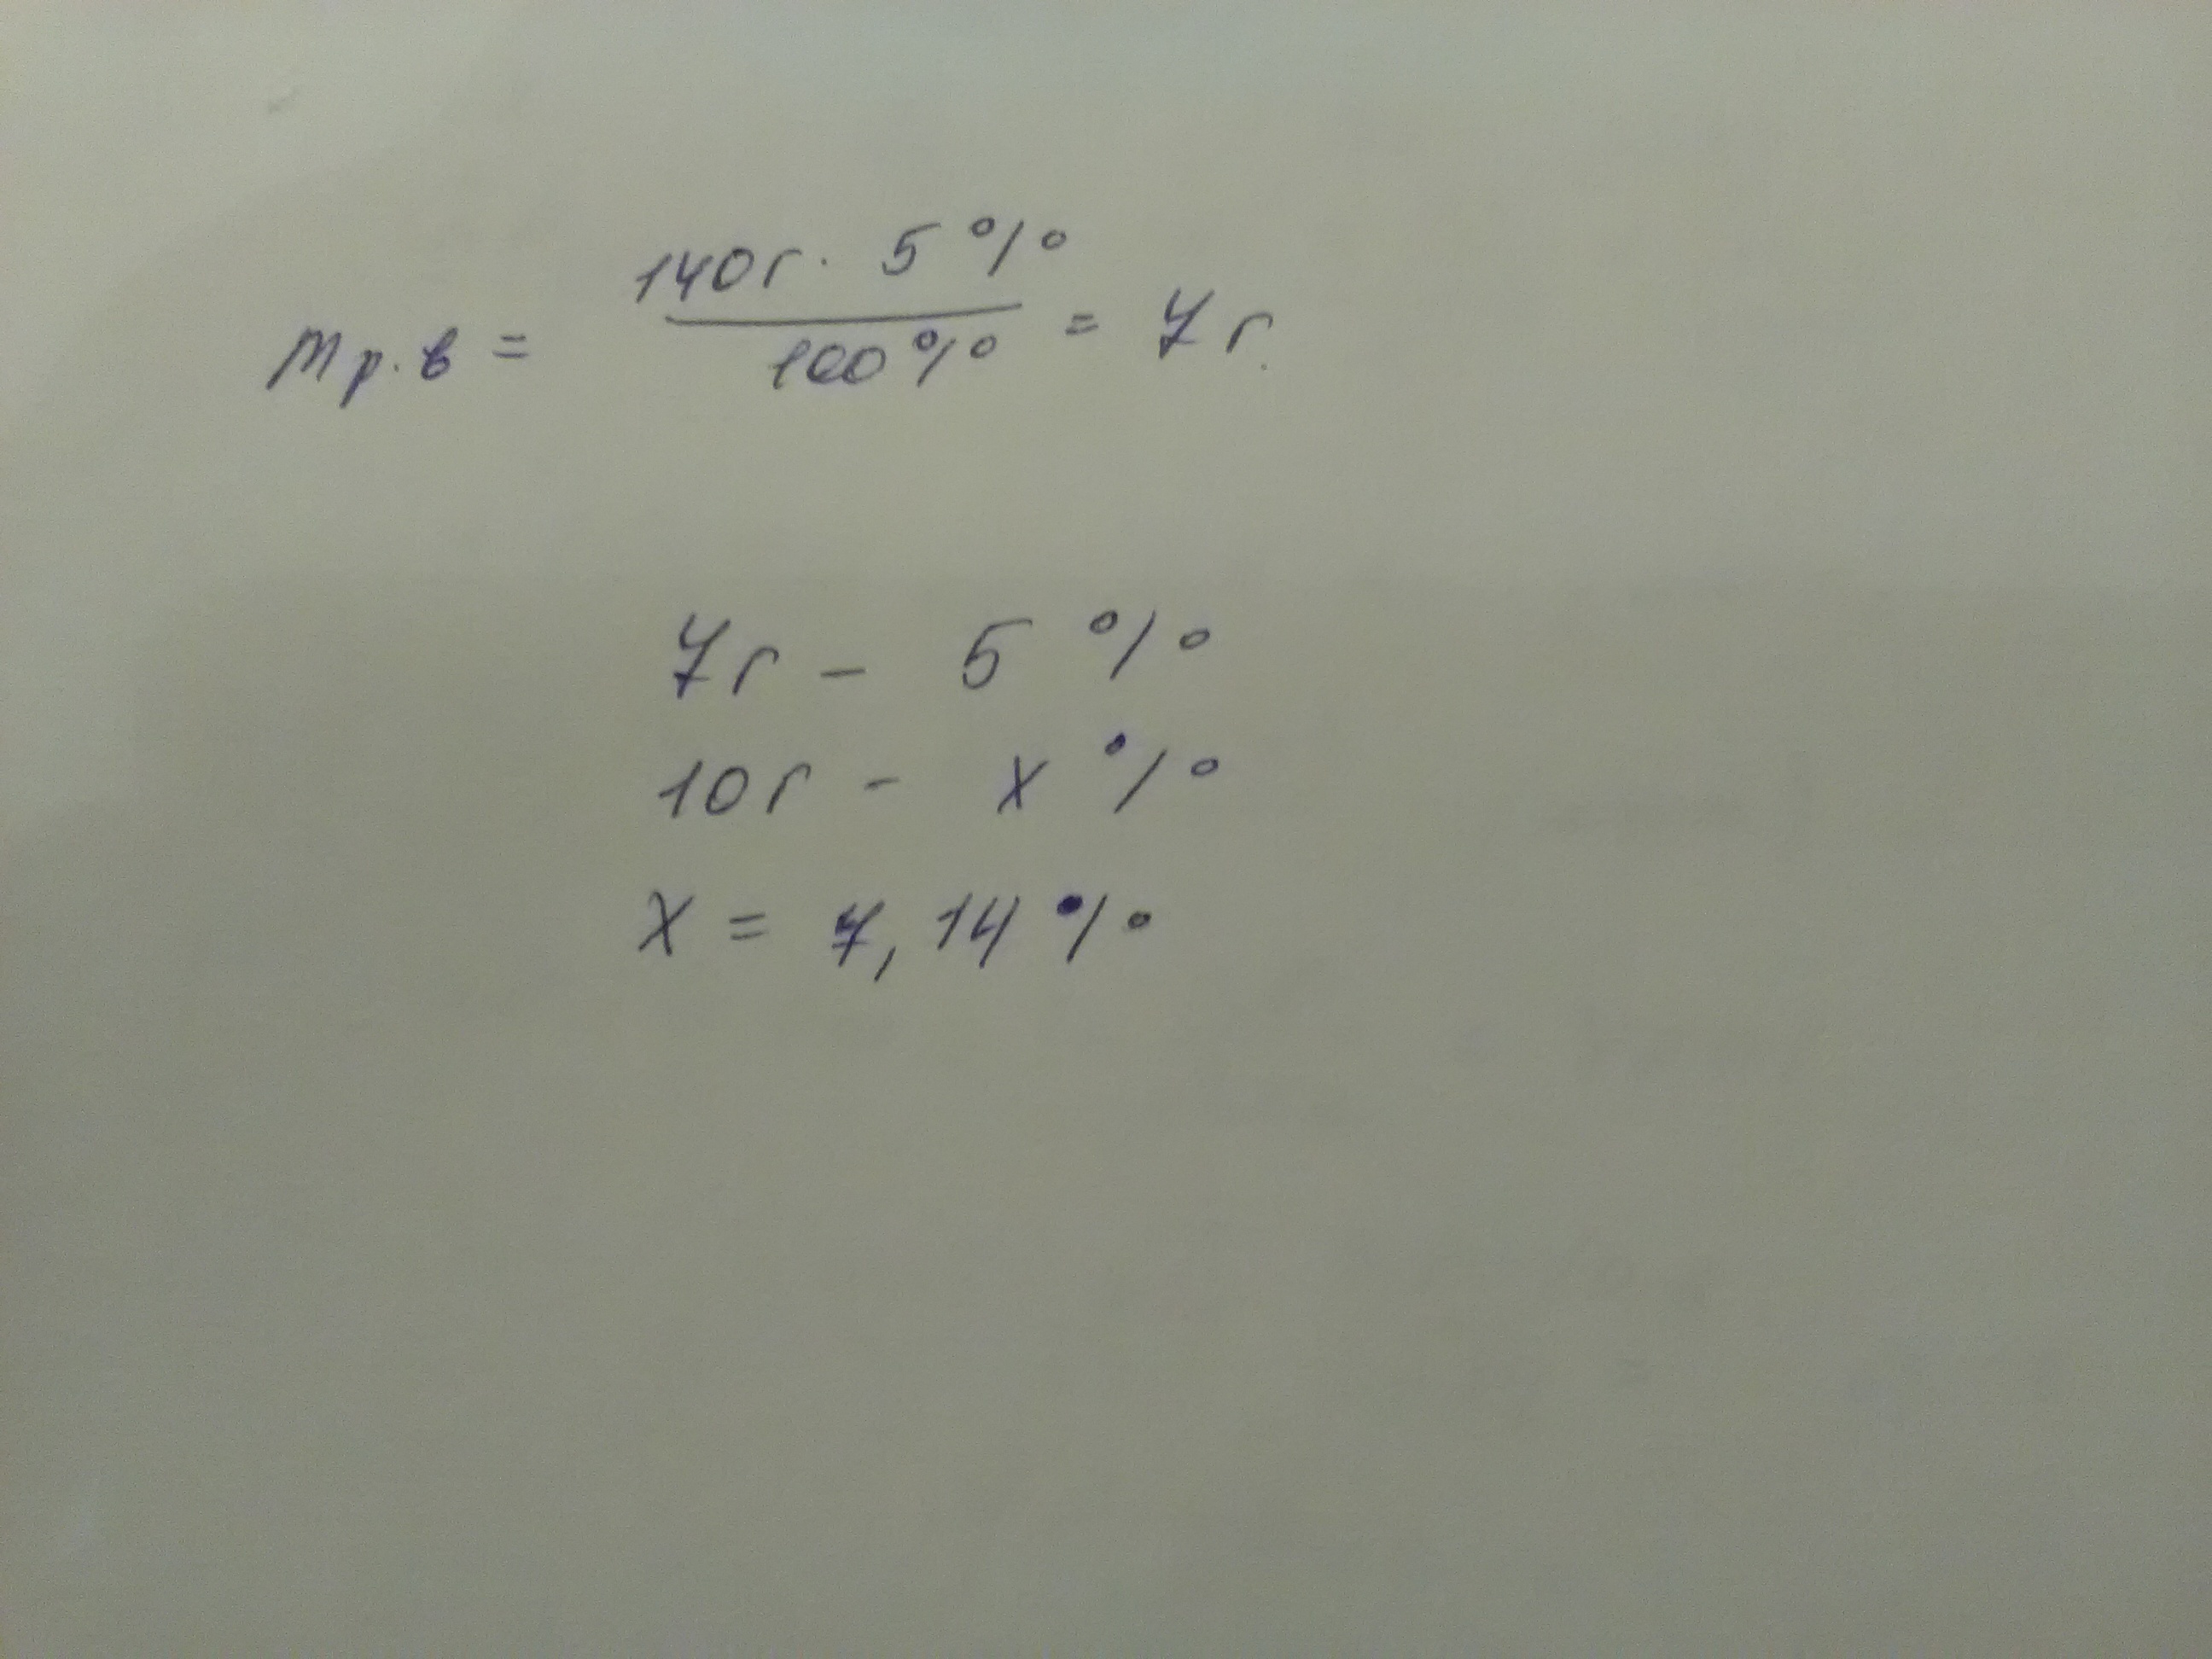 mр.в = 140г · 5% / 100% = 7г.
7г - 5%
10г - x%
x = 7,14%